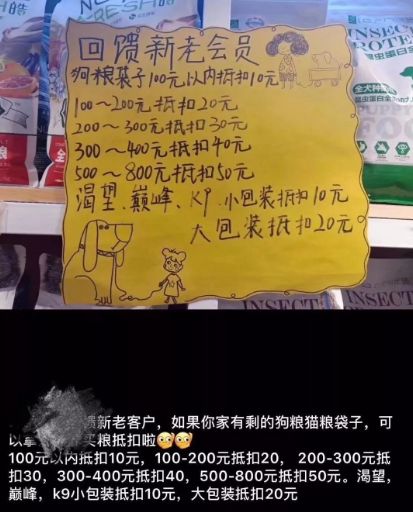 FRESH
INSECT
PROTE
全犬种
回馈新老会员
狗粮袋子100元以内抵扣10元
100~200元抵扣20元
200~300元抵扣30元
300~400元抵扣40元
500~800元抵扣50元
渴望、巅峰、K9小包装抵扣10元
大包装抵扣20元。
INSECT
INSECT
馈新老客户，如果你家有剩的狗粮猫粮袋子，可
买粮抵扣啦
100元以内抵扣10元，100-200元抵扣20， 200-300元抵
扣30，300-400元抵扣40，500-800元抵扣50元。渴望，
巅峰，k9小包装抵扣10元，大包装抵扣20元